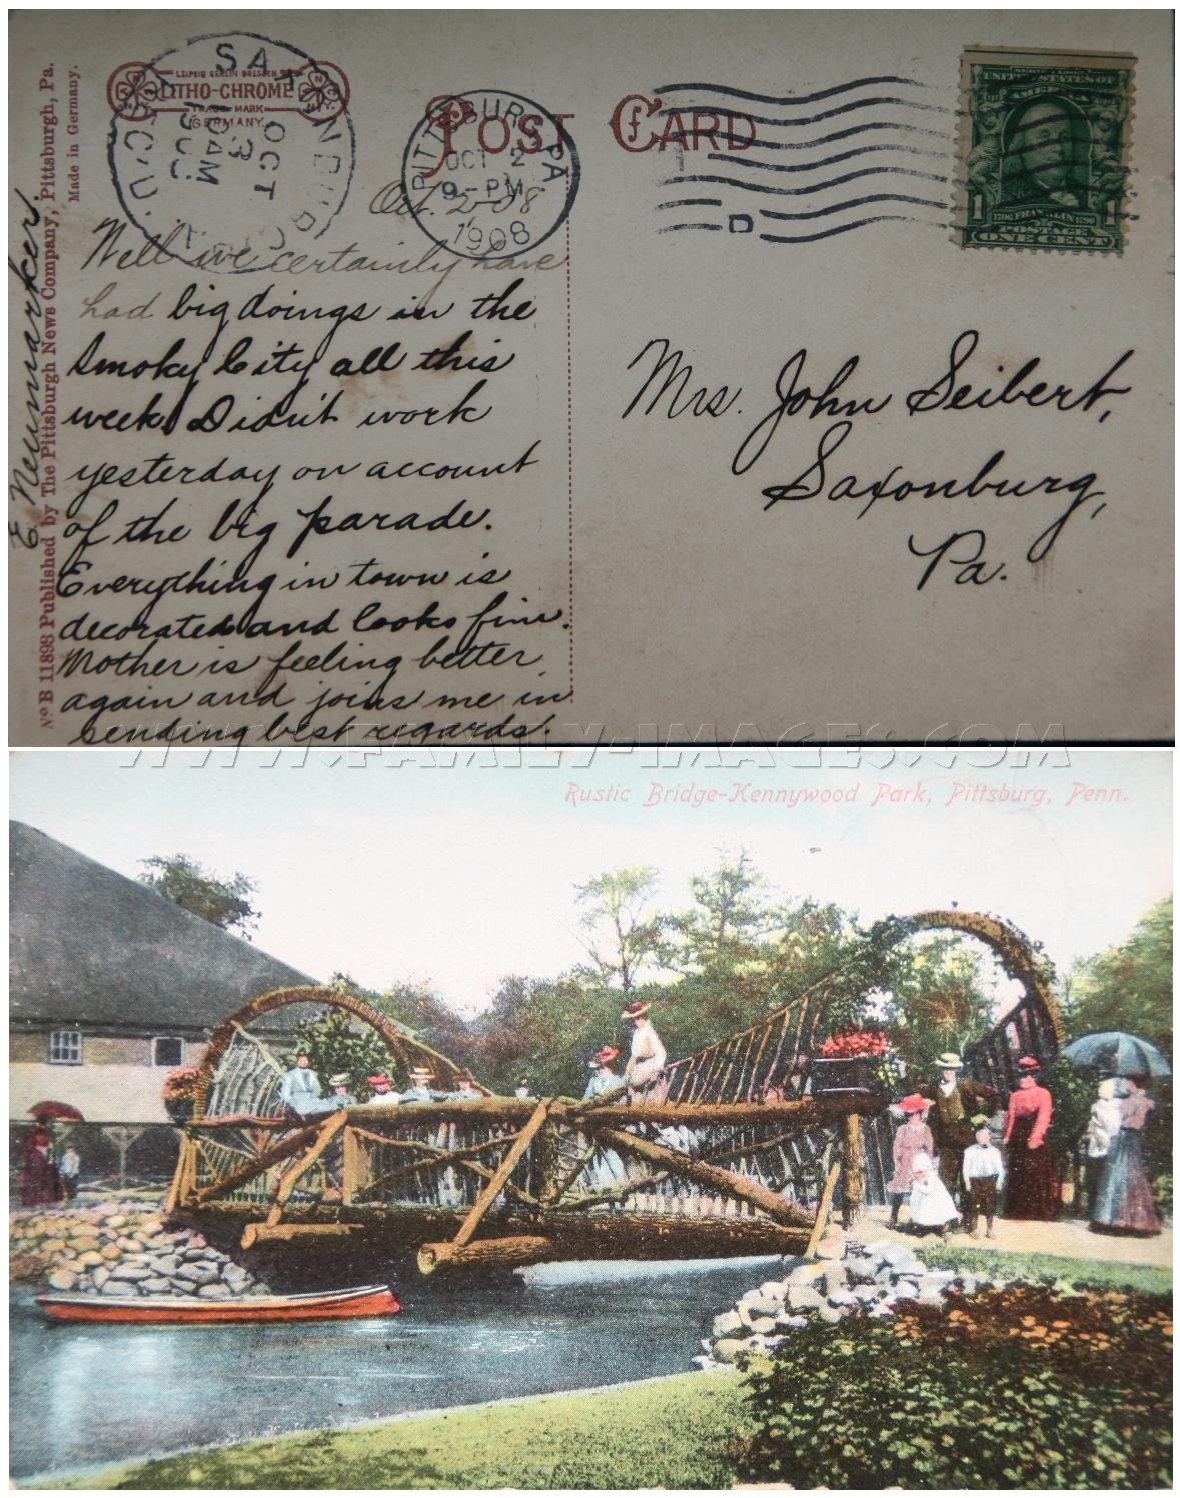 SAXONBURG
OCT
3
10AM
REC'D.
LEIPZIG BERLIN DRESDEN
LITHO-CHROME
TRADE MARK
GERMANY.
POST CARD
PITTSBURG, PA
OCT 2
9-PM
1908
D
UNITED STATES OF
AMERICA
1 1706 FRANKLIN 1790 1
POSTAGE
ONE CENT
Oct. 2-08
Well we certainly have
had big doings in the
Smoky City all this
week. Didn't work
yesterday on account
of the big parade.
Everything in town is
decorated and looks fine.
Mother is feeling better
again and joins me in
sending best regards.
E. Newmarker.
No B 11893 Published by The Pittsburgh News Company, Pittsburgh, Pa.
Made in Germany.
Mrs. John Seibert,
Saxonburg,
Pa.
WWW.FAMILY-IMAGES.COM
Rustic Bridge-Kennywood Park, Pittsburg, Penn.